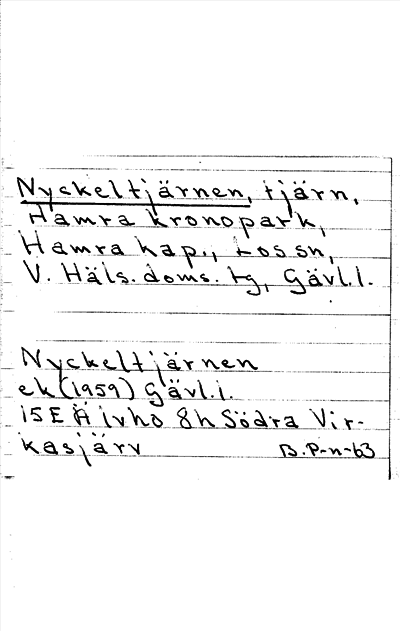 Nyckeltjärnen, tjärn,
Hamra kronopark,
Hamra kap., Los sn,
V. Häls. doms. tg, Gävl. l.
Nyckeltjärnen
ek (1959) Gävl. l.
15E Älvho 8h Södra Vir-
kasjärv B.P-n-63